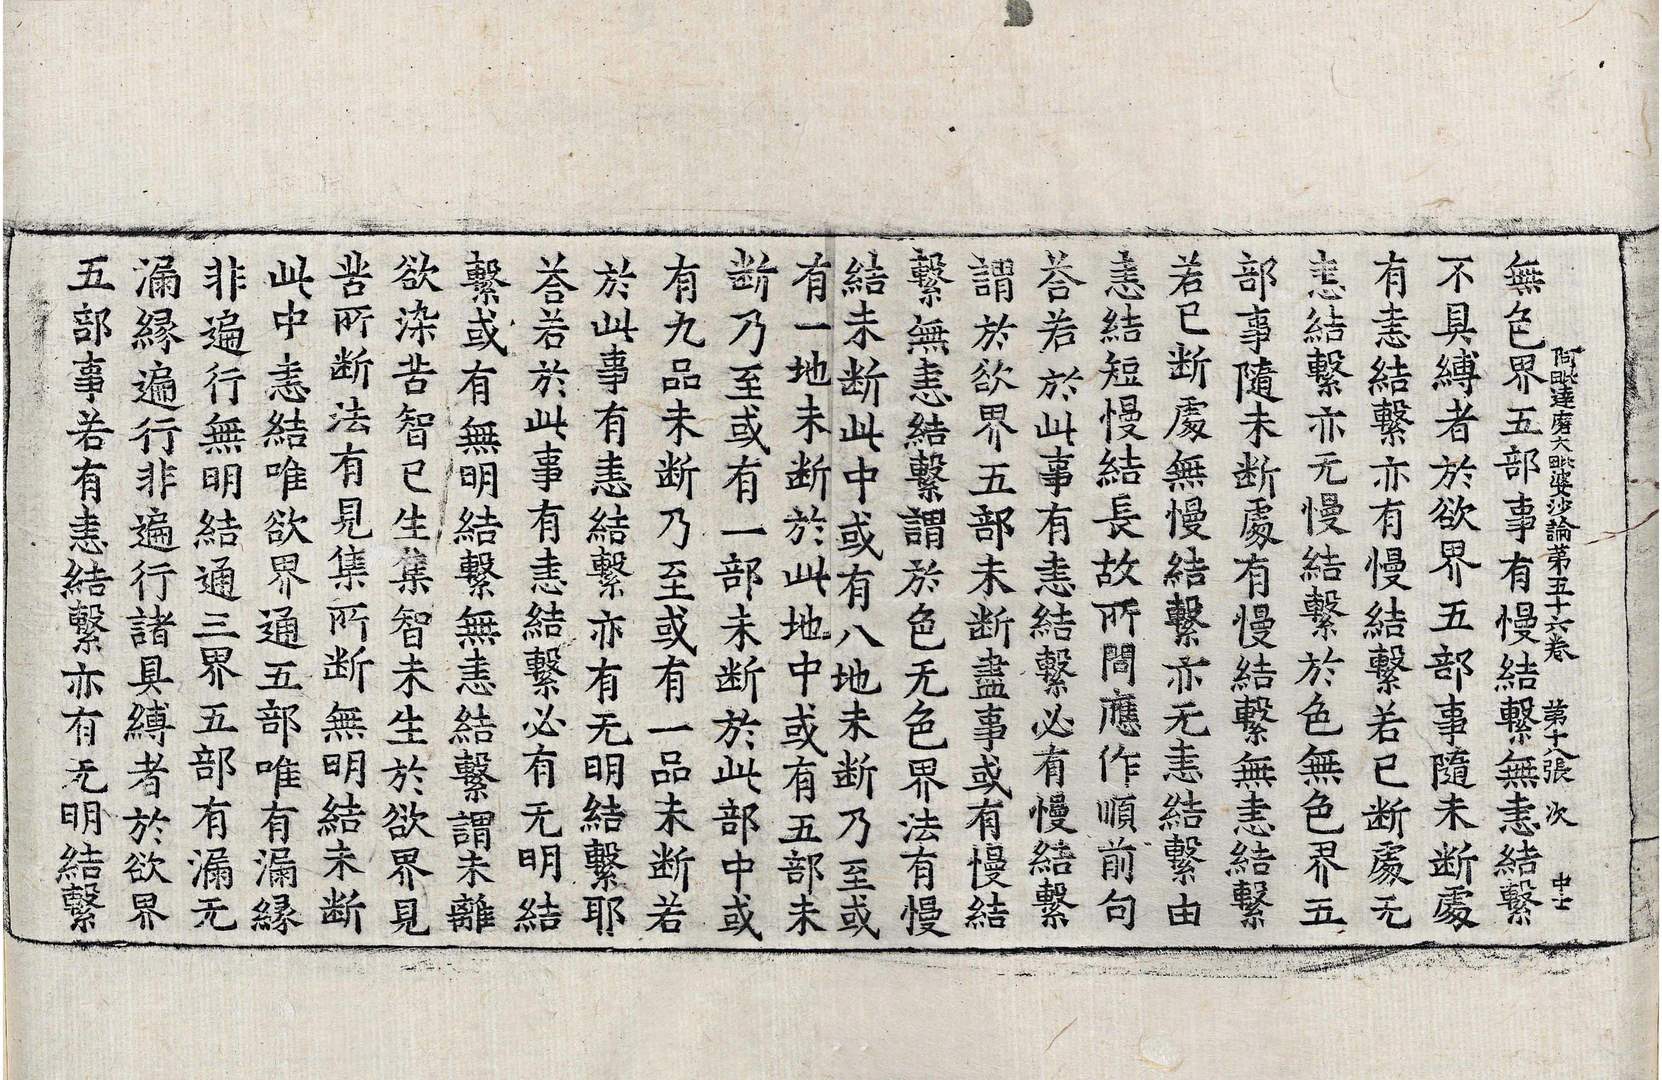 阿毗達磨大毗婆沙論第五十六卷 第十八張 次 中士
無色界五部事有慢結繫無恚結繫
不具縛者於欲界五部事隨未断處
有恚結繫亦有慢結繫若已断處无
恚結繫亦无慢結繫於色無色界五
部事隨未断處有慢結繫無恚結繫
若已断處無慢結繫亦无恚結繫由
恚結短慢結長故所問應作順前句
荅若於此事有恚結繫必有慢結繫
謂於欲界五部未断盡事或有慢結
繫無恚結繫謂於色无色界法有慢
結未断此中或有八地未断乃至或
有一地未断於此地中或有五部未
断乃至或有一部未断於此部中或
有九品未断乃至或有一品未断若
於此事有恚結繫亦有无明結繫耶
荅若於此事有恚結繫必有无明結
繫或有無明結繫無恚結繫謂未離
欲染苦智已生集智未生於欲界見
苦所断法有見集所断無明結未断
此中恚結唯欲界通五部唯有漏縁
非遍行無明結通三界五部有漏无
漏縁遍行非遍行諸具縛者於欲界
五部事若有恚結繫亦有无明結繫